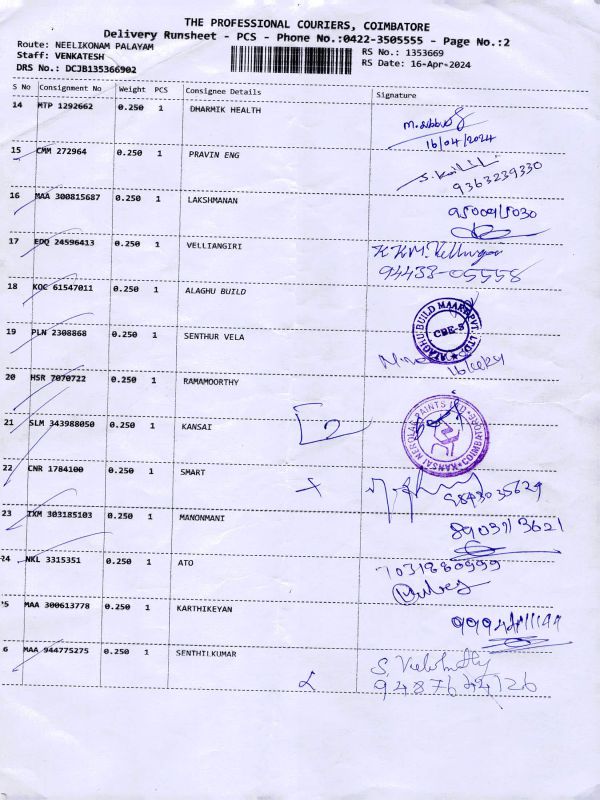 THE PROFESSIONAL COURIERS, COIMBATORE
Delivery Runsheet - PCS - Phone No.:0422-3505555 - Page No.:2
Route: NEELIKONAM PALAYAM
Staff: VENKATESH
DRS No.: DCJB135366902
RS No.: 1353669
RS Date: 16-Apr-2024
S No Consignment No Weight PCS Consignee Details Signature
14 MTP 1292662 0.250 1 DHARMIK HEALTH
16/04/2024
15 CMM 272964 0.250 1 PRAVIN ENG
9363239330
16 MAA 300815687 0.250 1 LAKSHMANAN
17 EDQ 24596413 0.250 1 VELLIANGIRI
94433-05558
18 KOC 61547011 0.250 1 ALAGHU BUILD
ALAGHU BUILD MAART PVT. LTD.
CBE-5
19 PLN 2308868 0.250 1 SENTHUR VELA
20 HSR 7070722 0.250 1 RAMAMOORTHY
21 SLM 343988050 0.250 1 KANSAI
KANSAI NEROLAC PAINTS LTD COIMBATORE
22 CNR 1784100 0.250 1 SMART
9843035629
23 IXM 303185103 0.250 1 MANONMANI
24 NKL 3315351 0.250 1 ATO
7031880999
5 MAA 300613778 0.250 1 KARTHIKEYAN
6 MAA 944775275 0.250 1 SENTHILKUMAR
9487644126